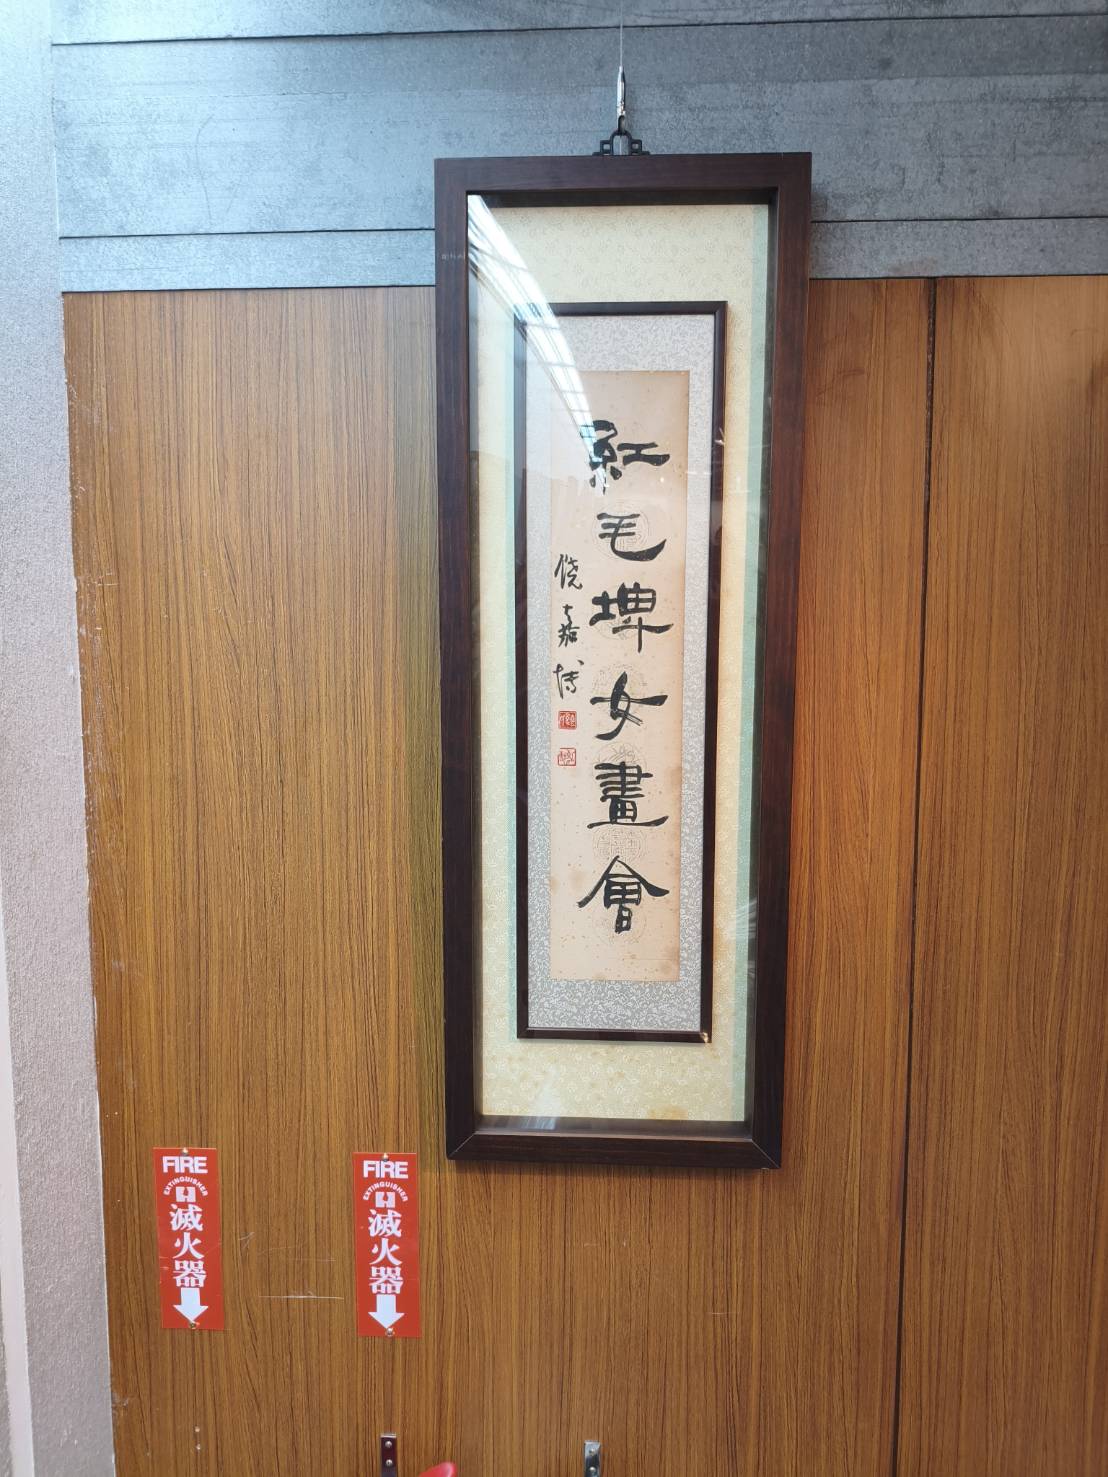 紅毛埤女畫會
饒嘉博
FIRE
EXTINGUISHER
滅火器
FIRE
EXTINGUISHER
滅火器